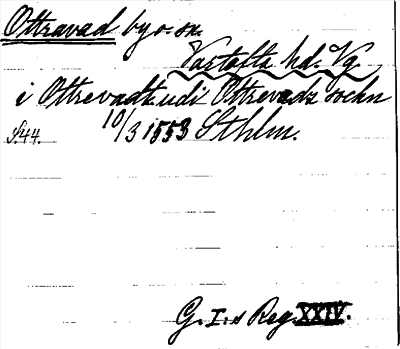 Ottravad by o. sn.
Vartofta hd. Vg.
i Ottrevadt udi Ottrevadz sochn
S. 44. 10/3 1553 Sthlm.
G. I:s Reg. XXIV.